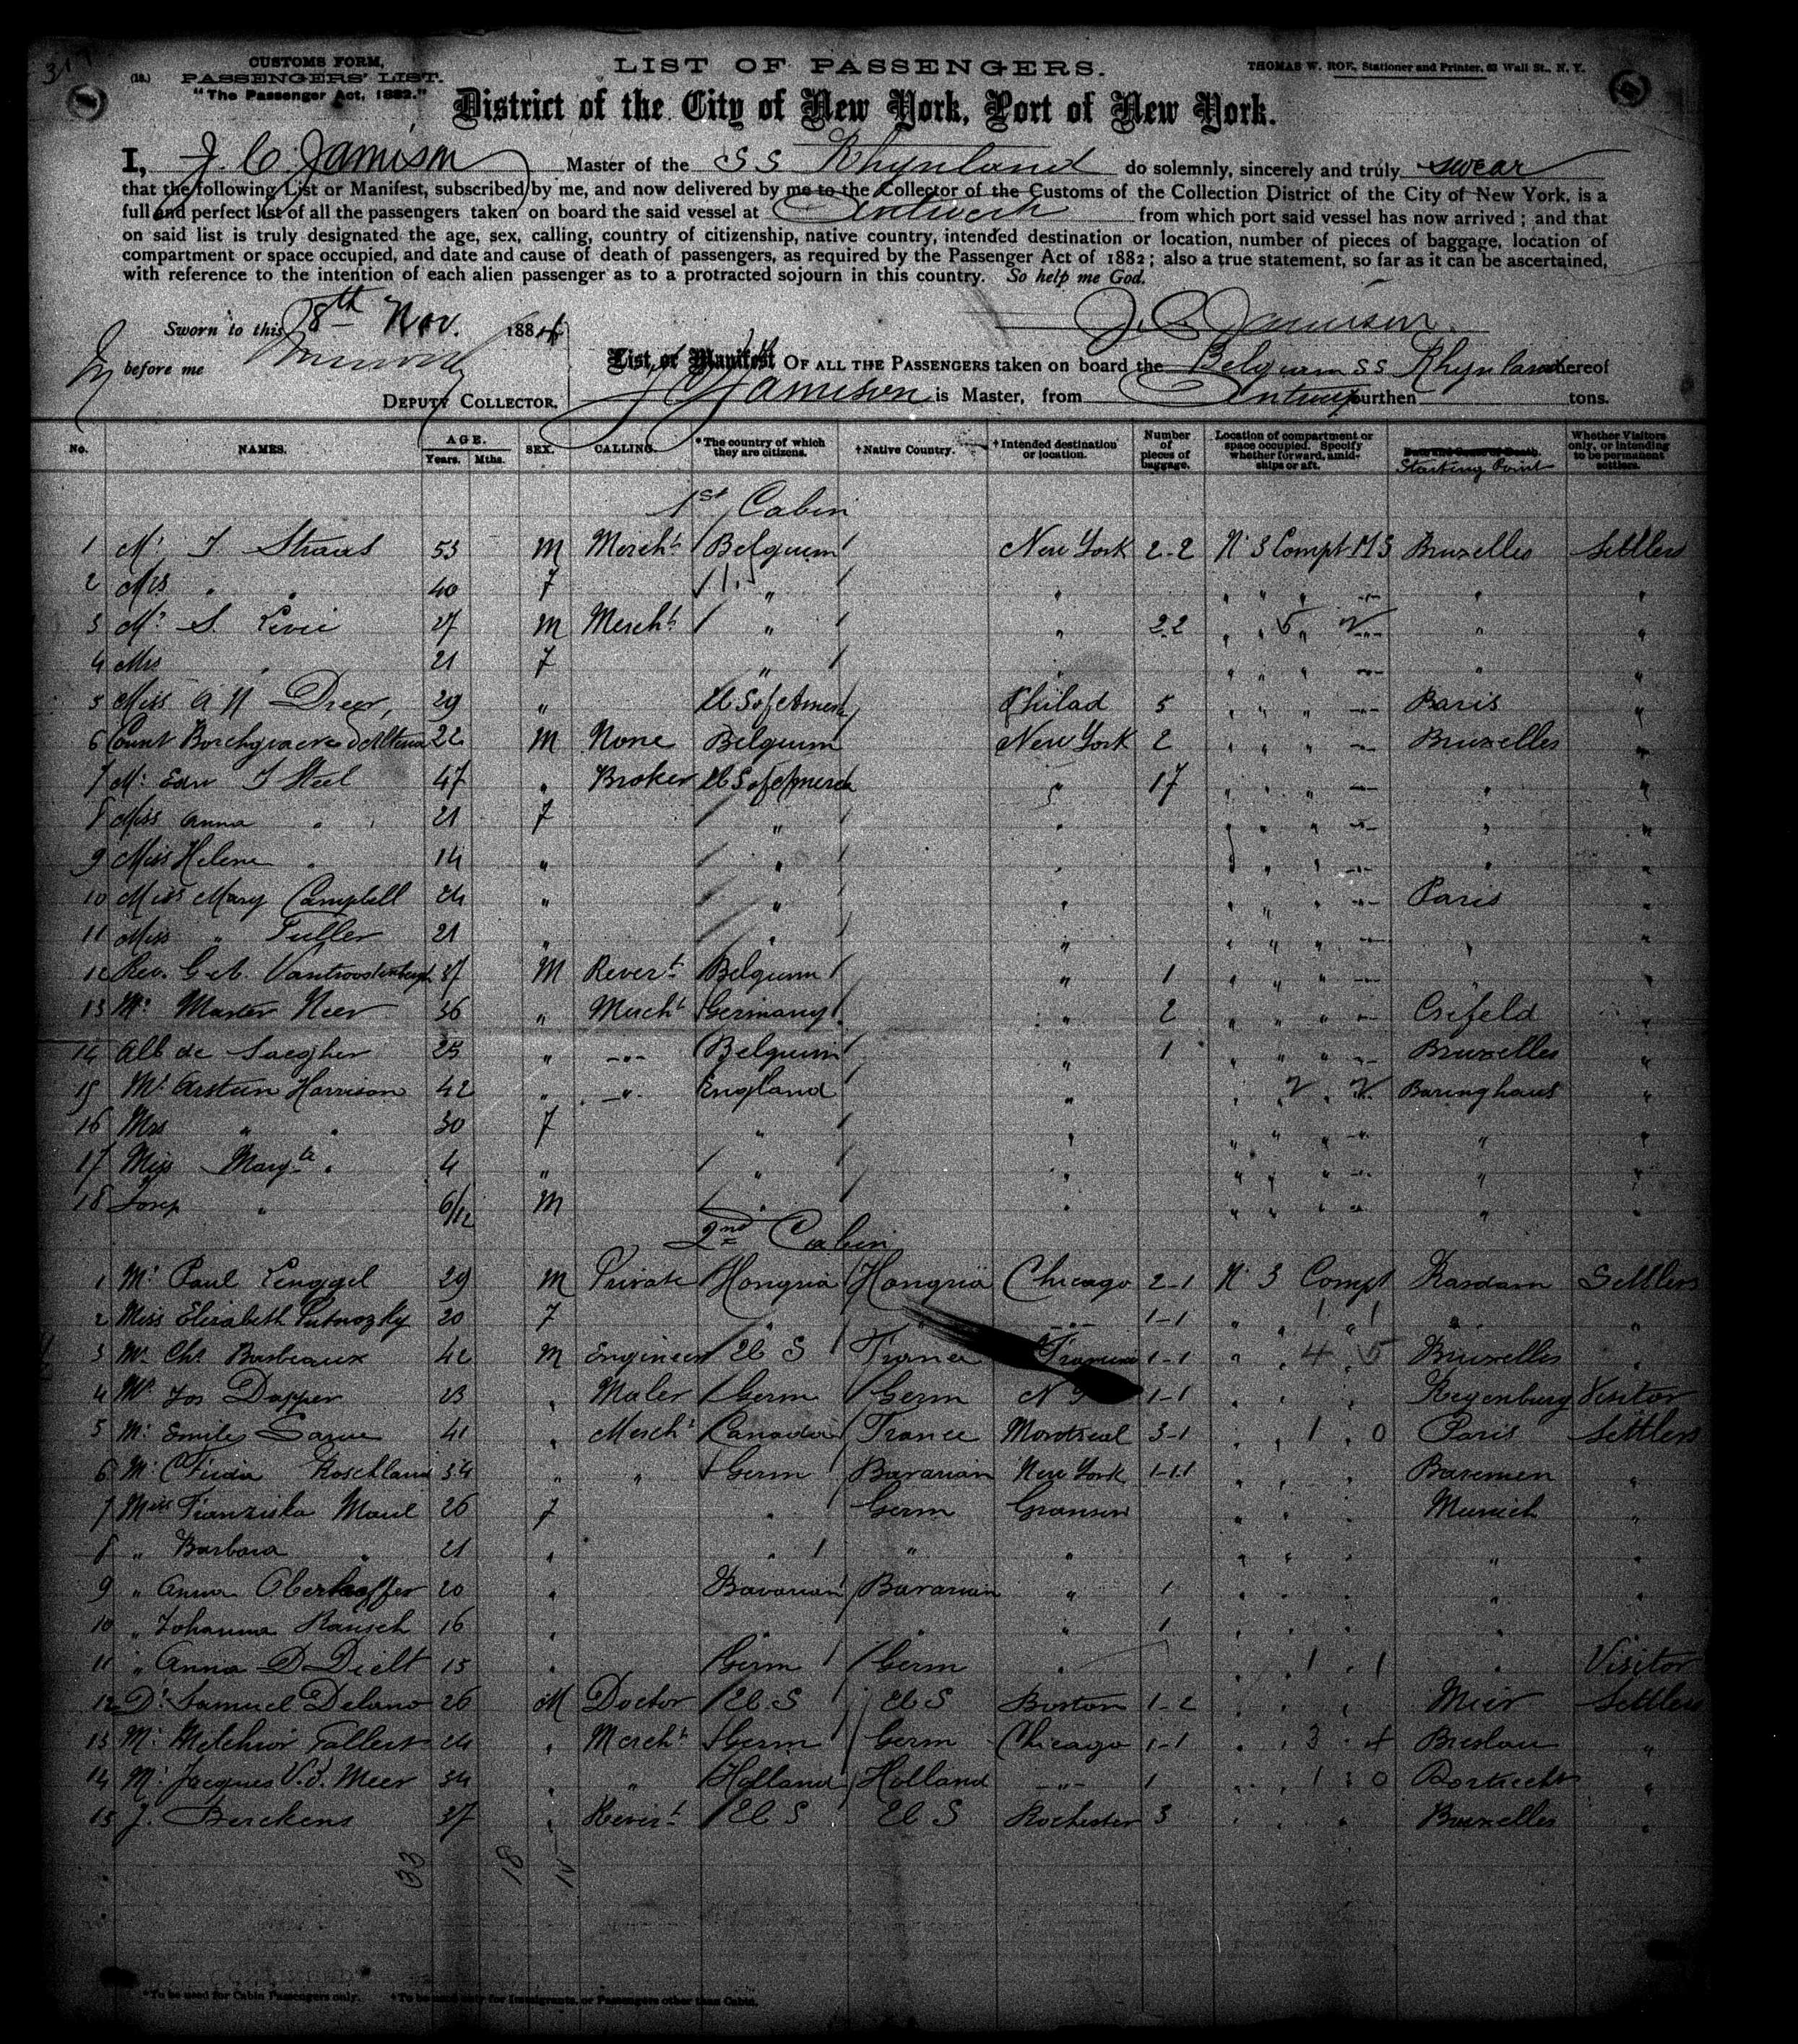 CUSTOMS FORM,
(18.) PASSENGERS' LIST.
"The Passenger Act, 1882."
LIST OF PASSENGERS.
THOMAS W. ROE, Stationer and Printer, 63 Wall St., N. Y.
District of the City of New York, Port of New York.
I, J. C. Jamison Master of the SS Rhynland do solemnly, sincerely and truly swear
that the following List or Manifest, subscribed by me, and now delivered by me to the Collector of the Customs of the Collection District of the City of New York, is a
full and perfect list of all the passengers taken on board the said vessel at Antwerp from which port said vessel has now arrived; and that
on said list is truly designated the age, sex, calling, country of citizenship, native country, intended destination or location, number of pieces of baggage, location of
compartment or space occupied, and date and cause of death of passengers, as required by the Passenger Act of 1882; also a true statement, so far as it can be ascertained,
with reference to the intention of each alien passenger as to a protracted sojourn in this country. So help me God.
Sworn to this 8th Nov. 188
J. C. Jamison
before me
List or Manifest OF ALL THE PASSENGERS taken on board the Belguim SS Rhynland whereof
DEPUTY COLLECTOR.
J C Jamison is Master, from Antwerp burthen tons.
No. NAMES. AGE. Years. Mths. SEX. CALLING. *The country of which they are citizens. †Native Country. †Intended destination or location. Number of pieces of baggage. Location of compartment or space occupied. Specify whether forward, amidships or aft. Date and Cause of Death. Starting Point Whether Visitors only, or intending to be permanent settlers.
1st Cabin
1 Mr J Straus 53 M Mercht Belguim New York 2-2 No 3 Compt Bruxelles Settlers
2 Mrs " " 40 F " " " "
3 Mr S. Levie 27 M Mercht " " 2.2 " " 5 " " "
4 Mrs " 21 F " " " "
5 Miss A N Dreer, 29 " U S of Amerk Philad 5 " " " Paris "
6 Count Borchgraeve d'Altena 22 M None Belguim New York 2 " " " Bruxelles "
7 Mr Edw J Steel 47 " Broker U S of Amerck " 17 " " " " "
8 Miss Anna " 21 F " " " "
9 Miss Helene " 14 " " " " "
10 Miss Mary Campbell 24 " " " Paris "
11 Miss " Fuller 21 " " " " "
12 Rev. G A. 37 M Revert Belguim " 1 " " " " "
13 Mr 36 " Mercht Germany " 2 " " " Crefeld "
14 Alb de Saegher 25 " -"- Belguim " 1 " " " Bruxelles "
15 Mr Harrison 42 " -"- England " " 2 " 2 "
16 Mrs " " 30 F " " " "
17 Miss Margte " 4 " " " " "
18 Josep " 6/12 M " " " "
2nd Cabin
1 Mr Paul Lenggel 29 M Private Hongria Hongria Chicago 2-1 No 3 Compt Settlers
2 Miss Elisabeth Putnozky 20 F " " -"- 1-1 " " 1 " 1 " "
3 Mr Chs Barbeaux 42 M Engineer U S France 1-1 " " 4 " 5 Bruxelles "
4 Mr Jos Dapper 23 " Maler Germ Germ N Y 1-1 " " " Regenburg Visitor
5 Mr Emile 41 " Mercht Canada France Montreal 3-1 " " 1 " 0 Paris Settlers
6 Mr 34 " " Germ Bavarian New York " " " "
7 Miss Franziska Maul 26 F " Germ " " " Munich "
8 " Barbara " 21 " " " " " " "
9 " Anna Oberhoffer 20 " Bavarian Bavarian " 1 " " " " "
10 " Johanna Rausch 16 " " " " 1 " " " " "
11 " Anna D Dielt 15 " Germ Germ " " " 1 " 1 " Visitor
12 Dr Samuel Delano 26 M Doctor U. S U S Boston 1-2 " " " Settlers
13 Mr Melchior 24 " Mercht Germ Germ Chicago 1-1 " " 3 " 4 Breslau "
14 Mr Jacques V. d. Meer 34 " " Holland Holland -"- 1 " " 1 " 0 Dortrecht "
15 J. Berckens 37 " Revert U S U S Rochester 3 " " " Bruxelles "
33 18
*To be used for Cabin Passengers only. †To be used only for Immigrants, or Passengers other than Cabin.